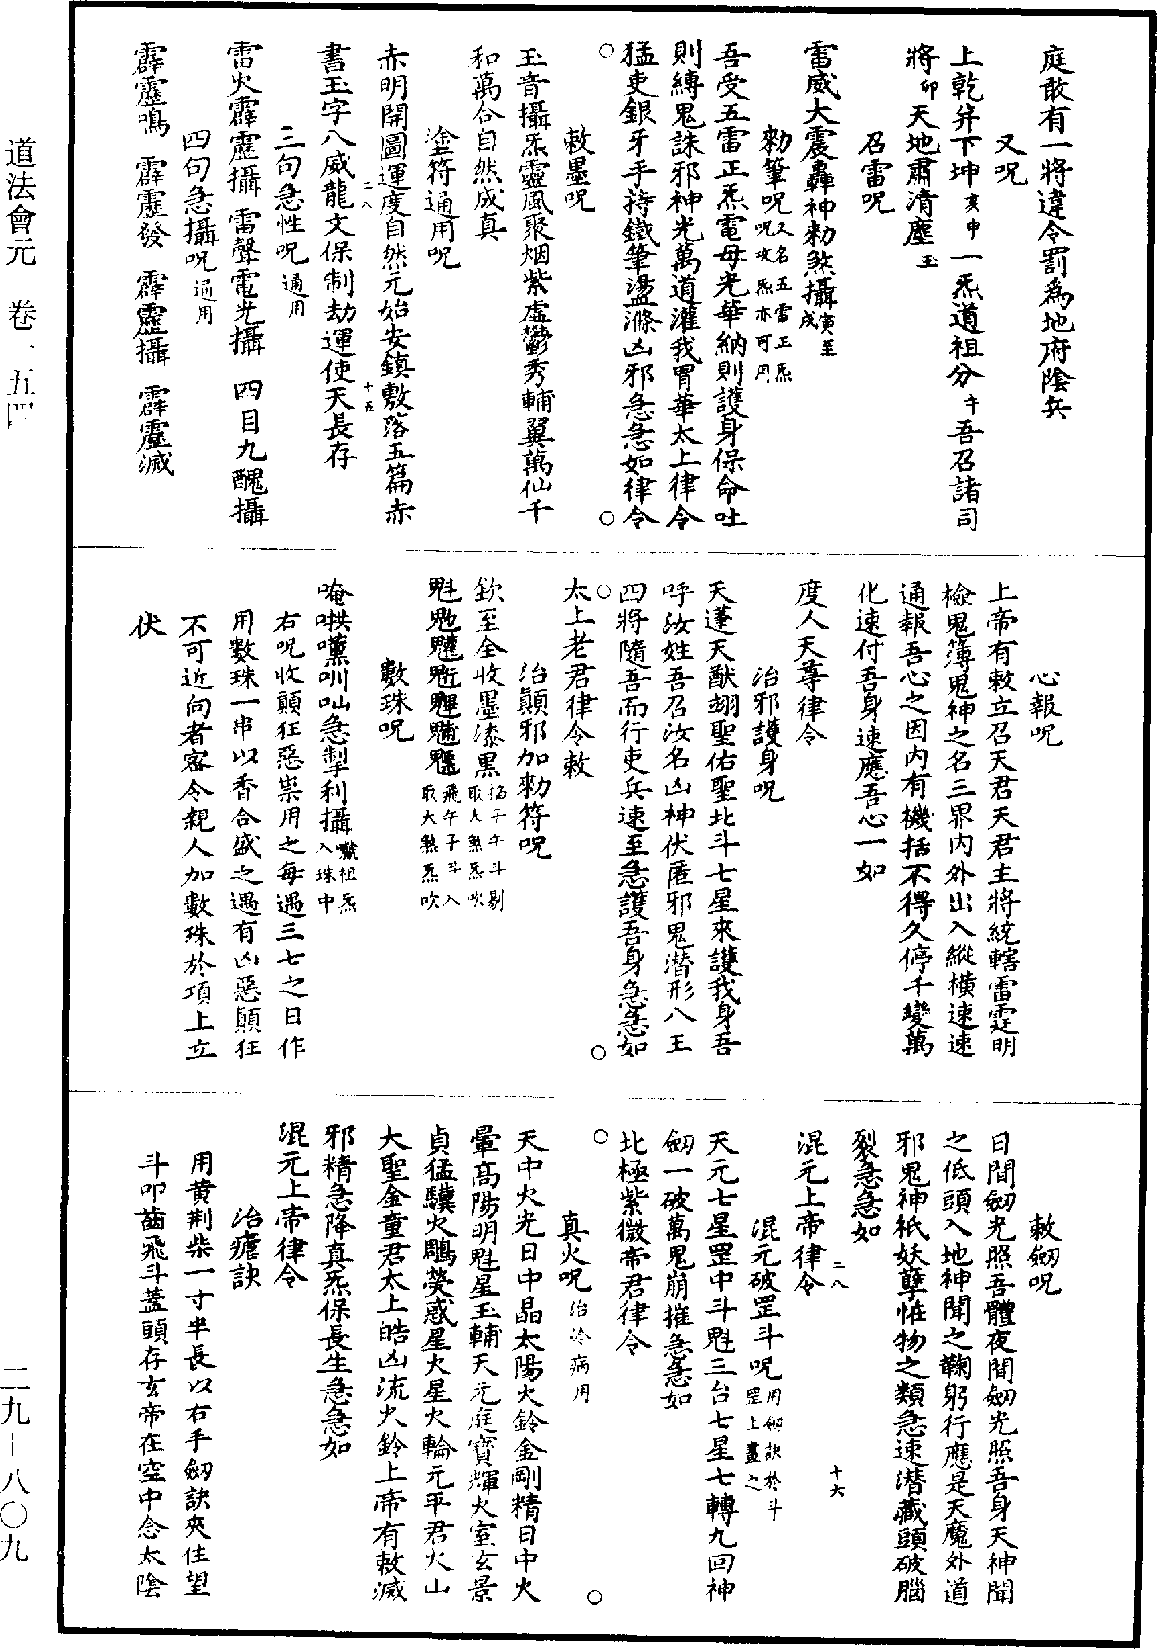 庭敢有一將違令罰為地府陰兵
又呪
上乾弁下坤亥申一炁道祖分午吾召諸司
將卯天地肅清塵玉
召雷呪
雷威大震轟神勑煞攝寅至戌
勑筆呪又名五雷正炁呪攻炁亦可用
吾受五雷正炁電母光華納則護身保命吐
則縛鬼誅邪神光萬道灌我胃華太上律令
猛吏銀牙手持鐵筆盪滌凶邪急急如律令
敕墨呪
玉音攝炁靈風聚烟紫虛鬱秀輔翼萬仙千
和萬合自然成真
塗符通用呪
赤明開圖運度自然元始安鎮敷落五篇赤
書玉字八威龍文保制劫運使天長存
三句急性呪通用
雷火霹靂攝 雷聲電光攝 四目九醜攝
四句急攝呪通用
霹靂鳴 霹靂發 霹靂攝 霹靂滅
心報呪
上帝有敕立召天君天君主將統轄雷霆明
檢鬼簿鬼神之名三界內外出入縱橫速速
通報吾心之因內有機括不得久停千變萬
化速付吾身速應吾心一如
度人天尊律令
治邪護身呪
天蓬天猷翊聖佑聖北斗七星來護我身吾
呼汝姓吾召汝名凶神伏匿邪鬼潛形八王
四將隨吾而行吏兵速至急護吾身急急如
太上老君律令敕
治顛邪加勑符呪
欽至全收墨漆黑 掐子午斗剔取大煞炁吹
飛午子斗入取大煞炁吹
數珠呪
唵 㘕吽 急掣利攝 嘬祖炁入珠中
右呪收顛狂惡祟用之每遇三七之日作
用數珠一串以香合盛之遇有凶惡顛狂
不可近向者密令親人加數珠於項上立
伏
敕劒呪
日間劒光照吾體夜間劒光照吾身天神聞
之低頭入地神聞之鞠躬行應是天魔外道
邪鬼神祇妖孽怪物之類急速潛藏頭破腦
裂急急如
混元上帝律令
混元破罡斗呪用劒訣於斗罡上畫之
天元七星罡中斗魁三台七星七轉九回神
劒一破萬鬼崩摧急急如
北極紫微帝君律令
真火呪治冷病用
天中火光日中晶太陽火鈴金剛精日中火
暈高陽明魁星玉輔天元庭寶輝火室玄景
貞猛驥火鵰熒惑星火星火輪元平君火山
大聖金童君太上皓凶流火鈴上帝有敕滅
邪精急降真炁保長生急急如
混元上帝律令
治瘧訣
用黄荆柴一寸半長以右手劒訣夾住望
斗叩齒飛斗蓋頭存玄帝在空中念太陰
道法會元 卷一五四
二九—八〇九